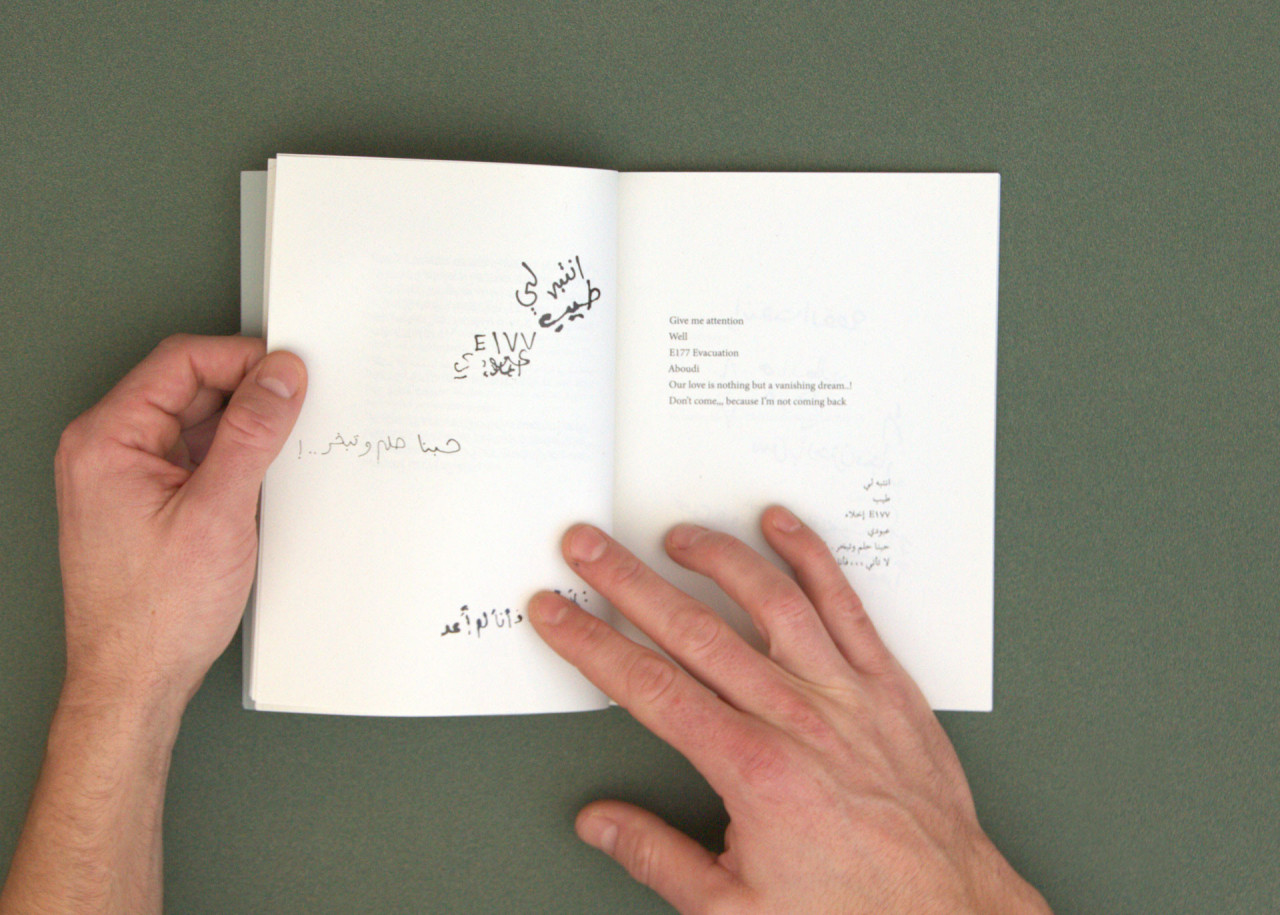 انتبه لي
طيب
E١٧٧
حبنا حلم وتبخر..!
فأنا لم أعد
Give me attention
Well
E177 Evacuation
Aboudi
Our love is nothing but a vanishing dream..!
Don't come,,, because I'm not coming back
انتبه لي
طيب
E١٧٧ إخلاء
عبودي
حبنا حلم وتبخر
لا تأتي